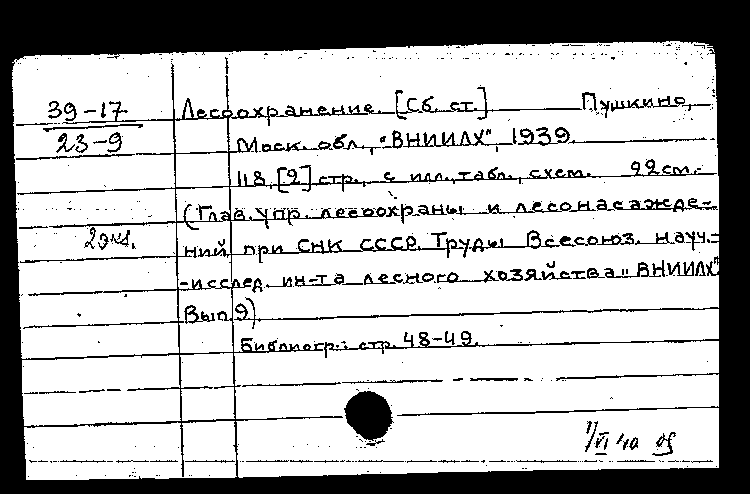 39-17
23-9
Лесоохранение. [Сб. ст.] Пушкино,
Моск. обл., "ВНИИЛХ", 1939.
118, [2] стр., с илл., табл., схем. 22 см.-
(Глав. упр. лесоохраны и лесонасажде-
2 экз.
ний при СНК СССР. Труды Всесоюз. науч.-
-исслед. ин-та лесного хозяйства "ВНИИЛХ"
Вып. 9).
Библиогр.: стр. 48-49.
1/VI 40